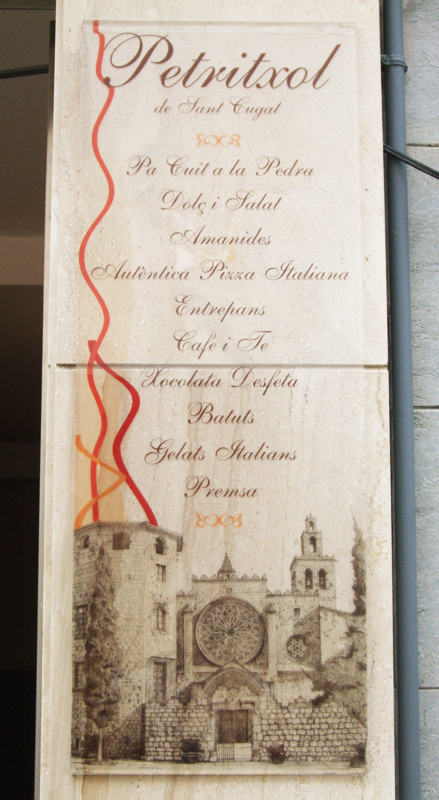 Petritxol
de Sant Cugat
Pa Cuit a la Pedra
Dolç i Salat
Amanides
Autèntica Pizza Italiana
Entrepans
Cafe i Te
Xocolata Desfeta
Batuts
Gelats Italians
Premsa